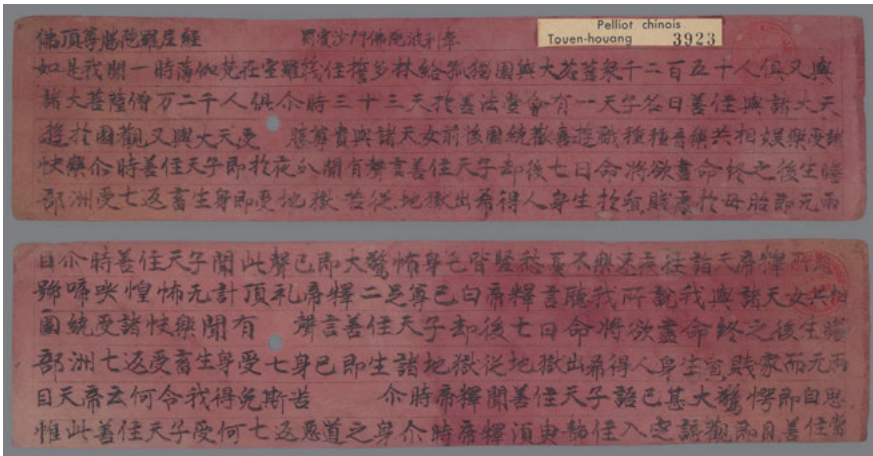 佛頂尊勝陁羅尼經 罽賓沙門佛陁波利奉
Pelliot chinois
Touen-houang 3923
如是我聞一時薄伽梵在室羅筏住誓多林給孤獨園與大苾蒭衆千二百五十人俱又與
諸大菩薩僧万二千人俱尒時三十三天扵善法堂會有一天子名曰善住與諸大天
遊扵園觀又與大天受 勝尊貴與諸天女前後圍繞歡喜遊戲種種音樂共相娛樂受諸
快樂尒時善住天子即扵夜分聞有聲言善住天子却後七日命將欲盡命終之後生贍
部洲受七返畜生身即受地獄苦從地獄出希得人身生扵貧賤處扵母胎即无兩
目尒時善住天子聞此聲已即大驚怖身毛皆竪愁憂不樂速疾往詣天帝釋所悲
號啼哭惶怖无計頂礼帝釋二足尊已白帝釋言聽我所說我與諸天女共相
圍繞受諸快樂聞有 聲言善住天子却後七日命將欲盡命終之後生贍
部洲七返受畜生身受七身已即生諸地獄從地獄出希得人身生貧賤家而无兩
目天帝云何令我得免斯苦 尒時帝釋聞善住天子語已甚大驚愕即自思
惟此善住天子受何七返惡道之身尒時帝釋須臾靜住入定諦觀即見善住當